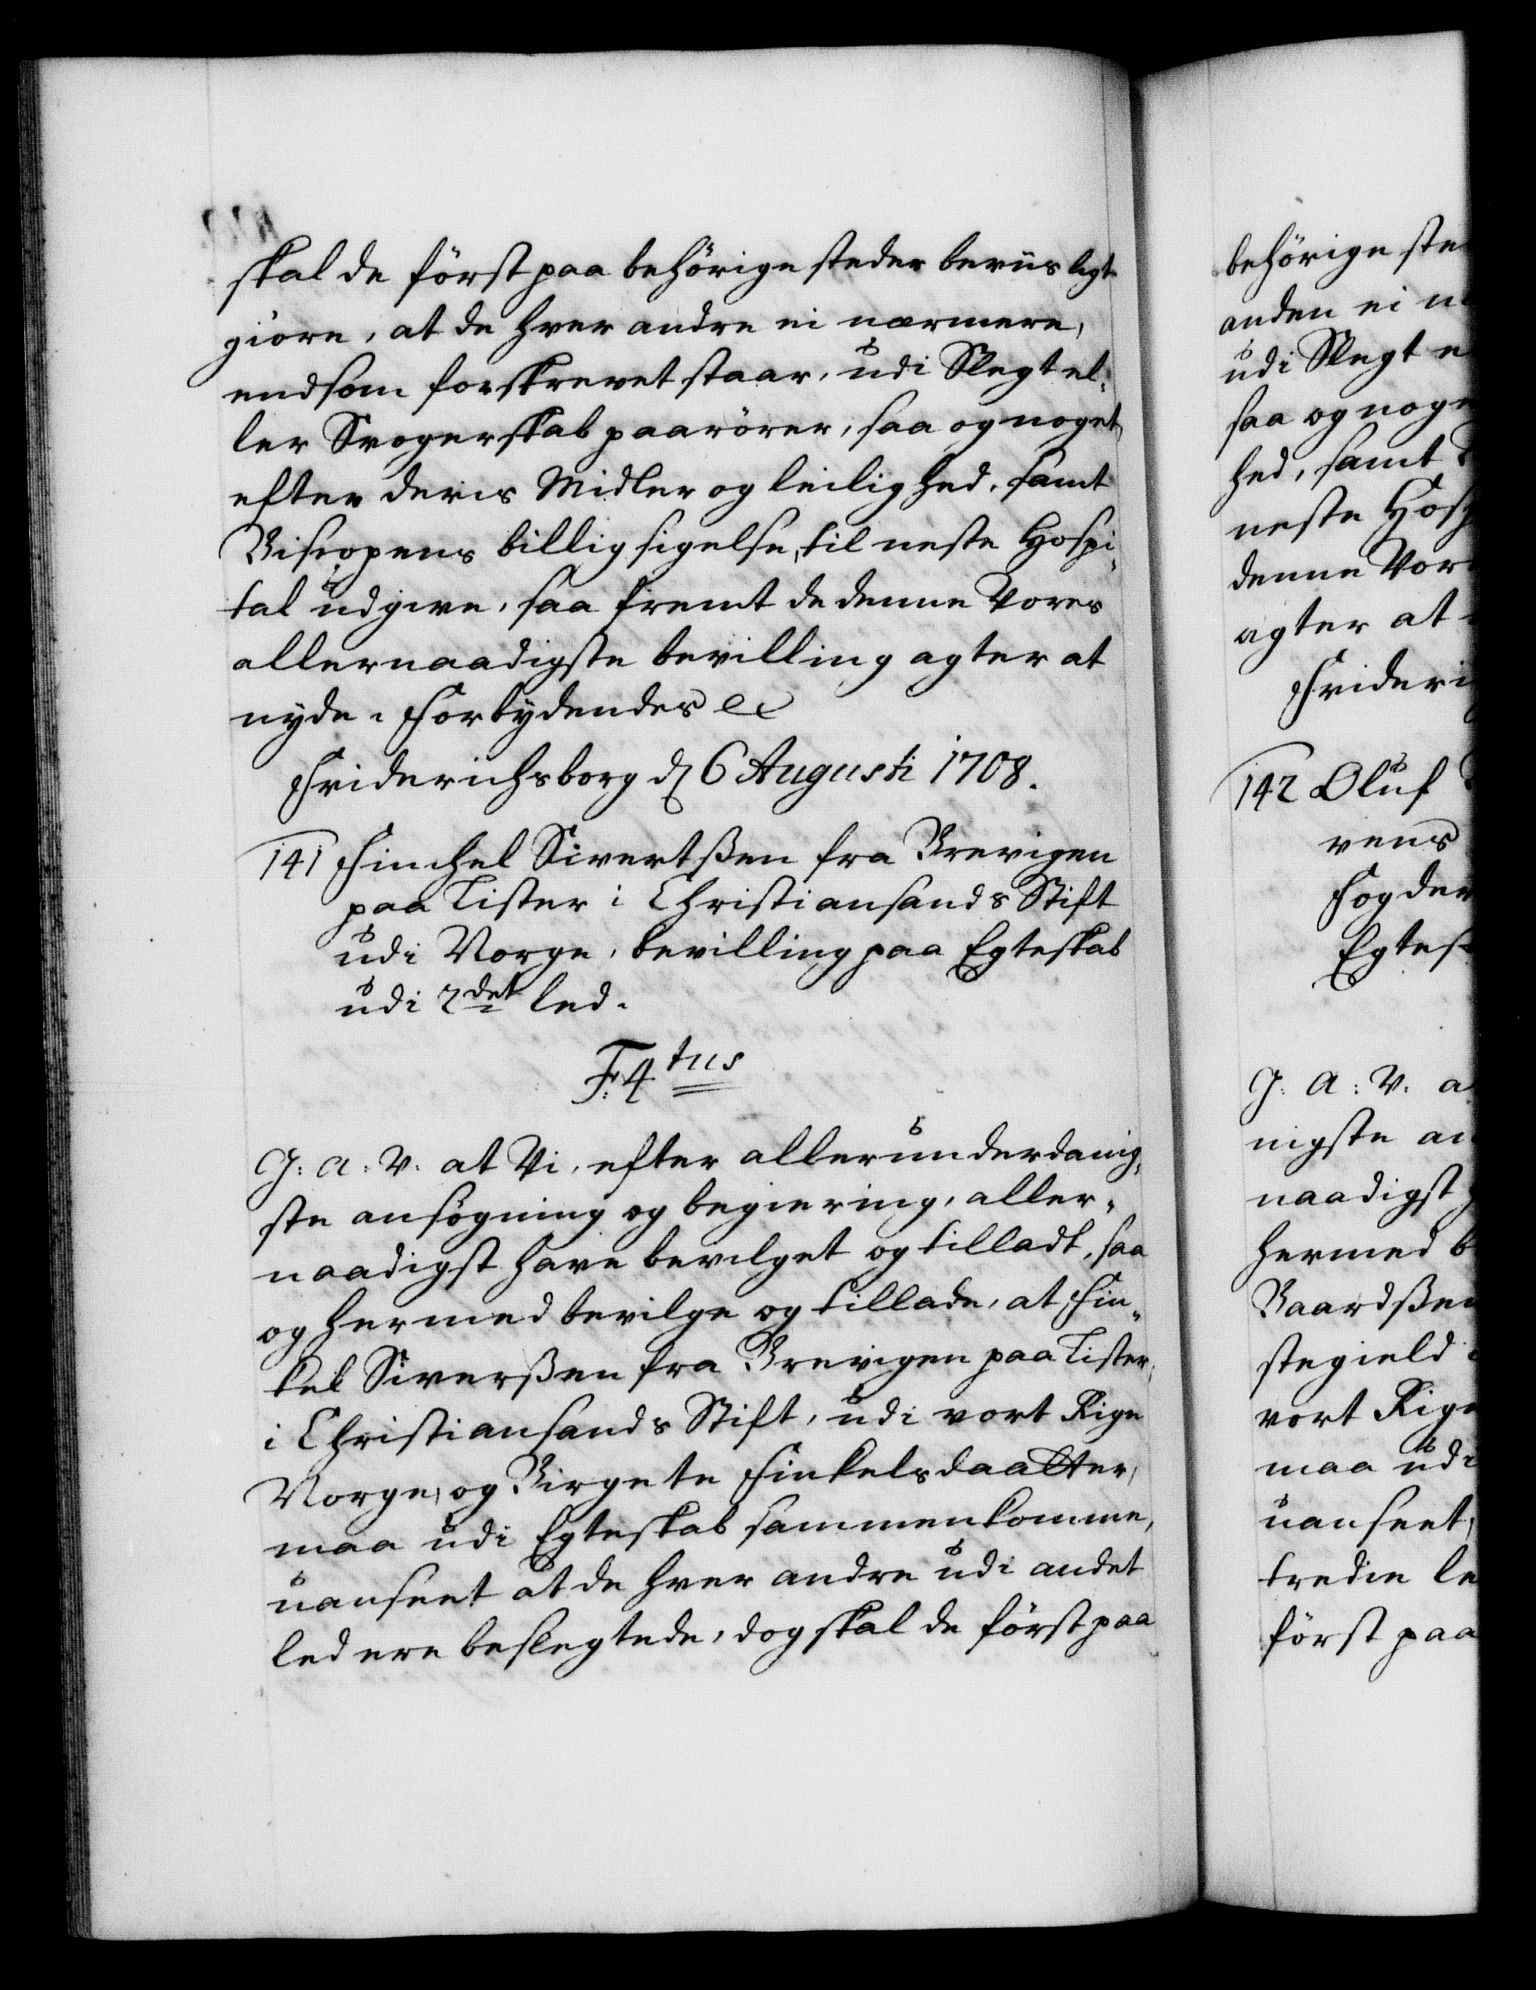 skal de först paa behörige steder beviisligt
giöre, at de hver andre ei nærmere,
end som forskrevet staar, udi Slegt el,
ler Svogerskab paarörer, saa og noget
efter deris Midler og leilighed, samt
Biscopens billigsigelse, til neste Hospi,
tal udgive, saa fremt de denne Vores
allernaadigste bevilling agter at
nyde. Forbydendes etc
Friderichsborg d 6 Augusti 1708.
141 Finchel Sivertßen fra Brevigen
paa Lister i Christiansands Stift
udi Norge, bevilling paa Egteskab
udi 2det led.
F. 4tus
G: A: V: at Vi, efter allerunderdanig,
ste ansögning og begiering, aller,
naadigst have bevilget og tilladt, saa
og hermed bevilge og tillade, at Fin,
kel Siverßen fra Brevigen paa Lister,
i Christiansands Stift, udi vort Rige
Norge, og Birgete Finkelsdaatter,
maa udi Egteskab sammenkomme,
uanseet at de hver andre udi andet
led ere beslegtede, dog skal de först paa
behörige ste
anden ei n
udi Slegt e
saa og noge
hed, samt
neste Hosp
denne Vor
agter at
Frideri
142 Oluf
vens
Fogder
Egtes
G: A: V: a
nigste an
naadigst
hermed b
Baardßen
stegield
vort Rige
maa udi
uanseet,
tredie le
först paa